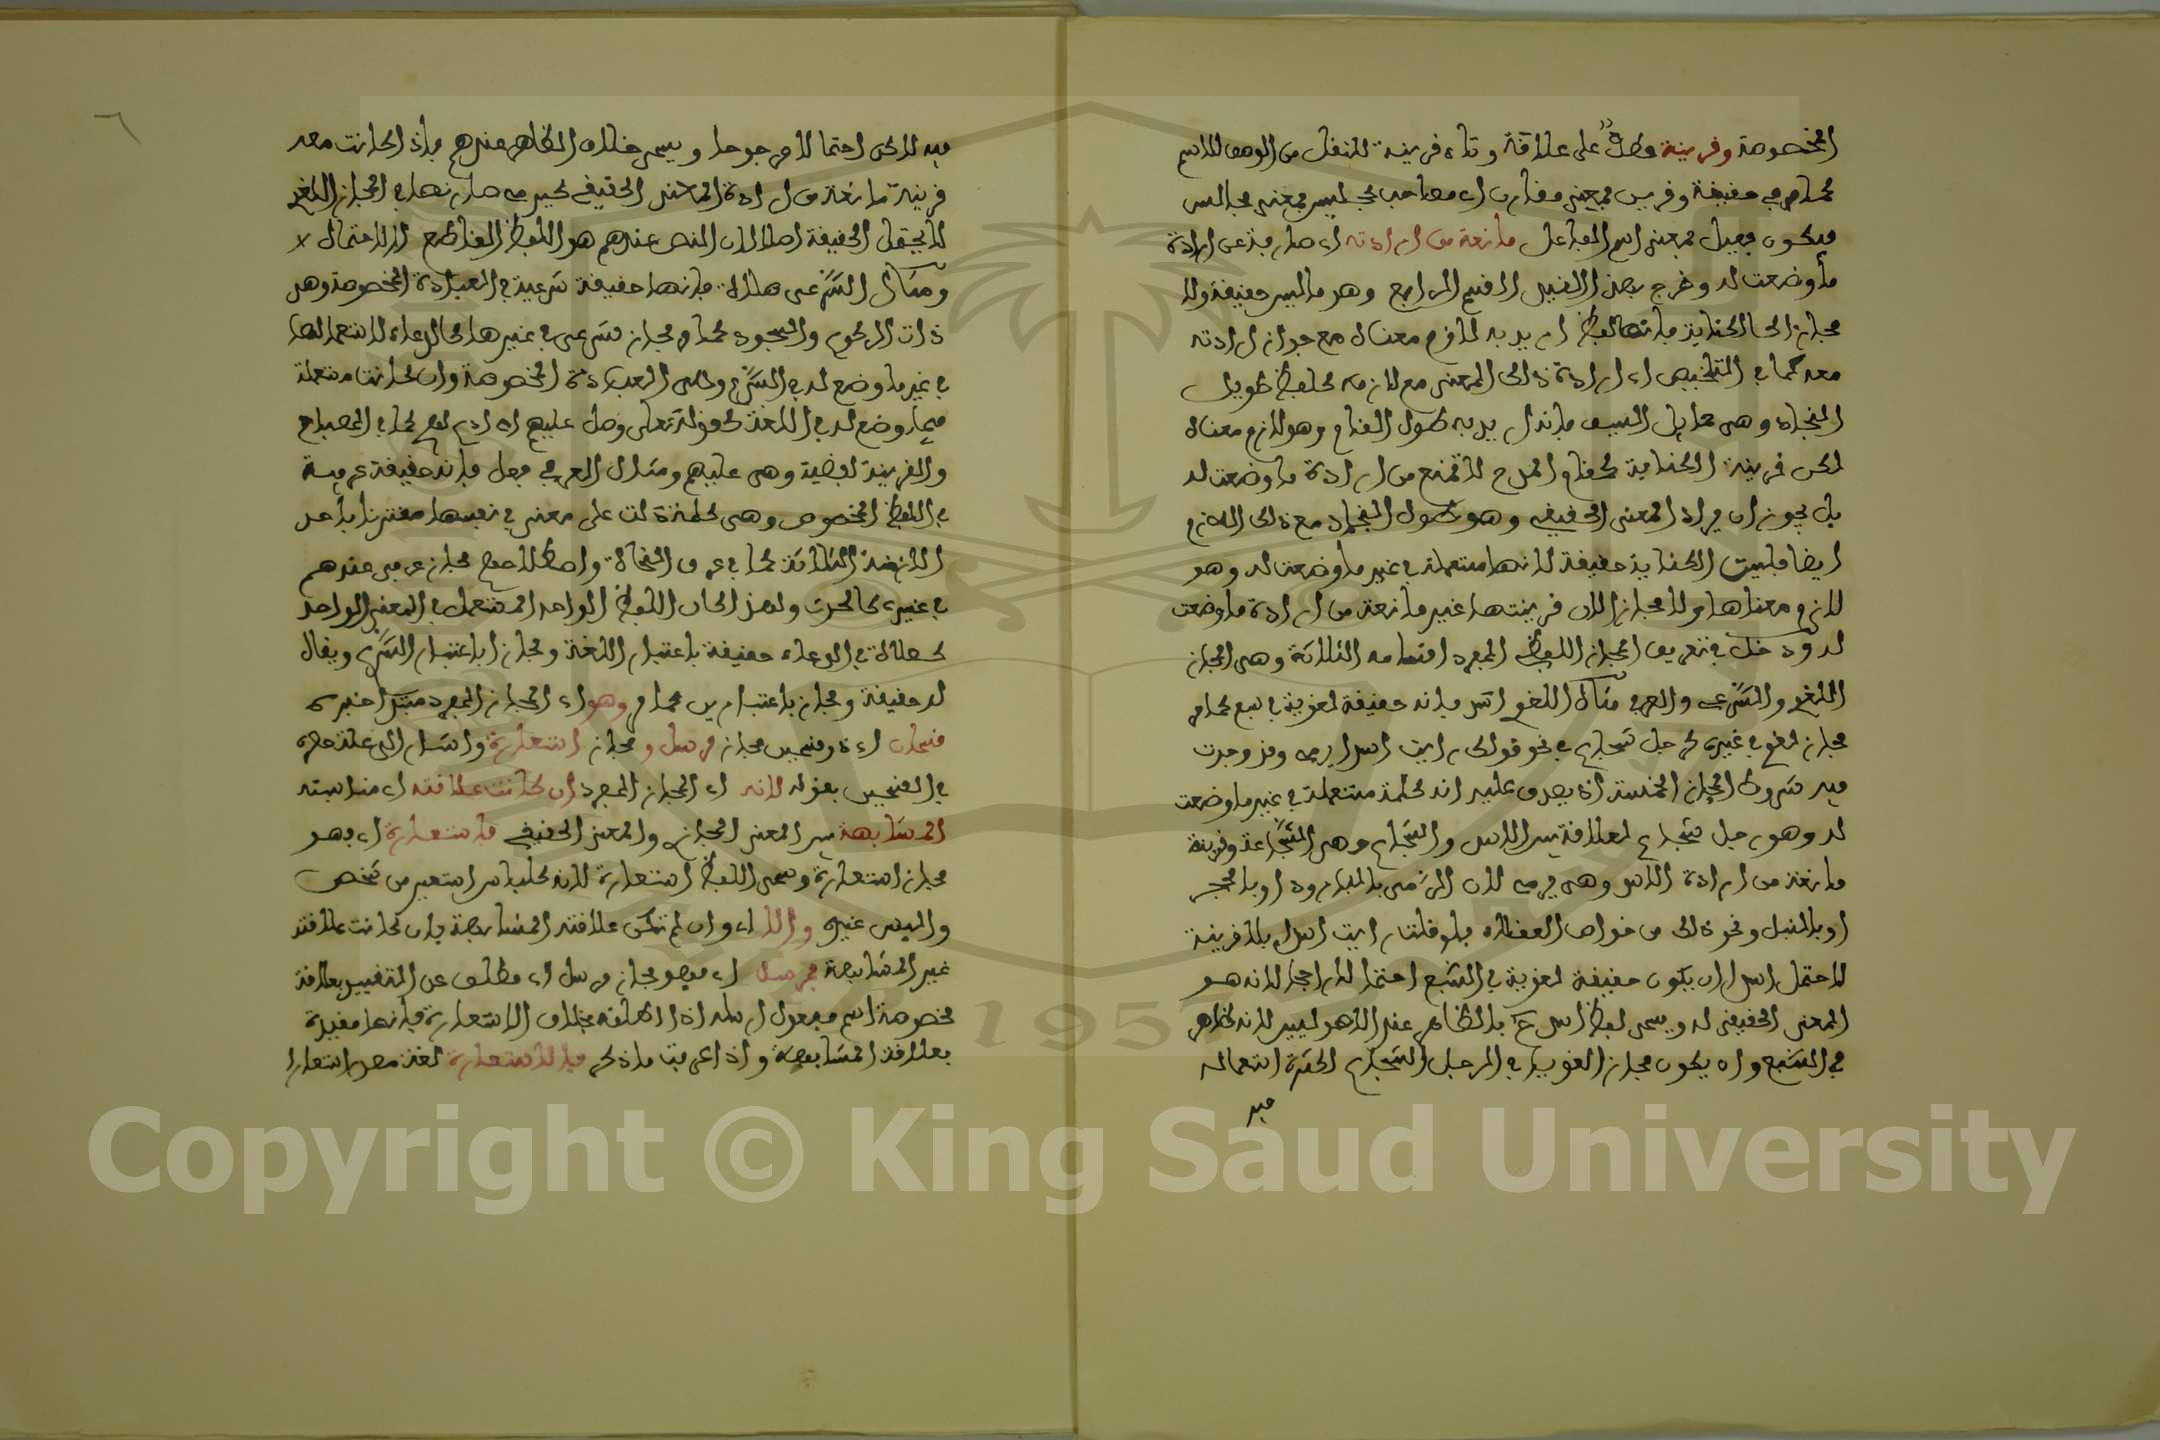 المخصوصة وقرينة عطف على علاقة وتاء قرينة للنقل من الوصف للاسم
كما مر في حقيقة وقرين بمعنى مقارن اي مصاحب كجليس بمعنى مجالس
فيكون فعيل بمعنى اسم الفاعل مانعة من ارادته اي صارفة عن ارادة
ما وضعت له وخرج بهذا القيد القسم الرابع وهو ما ليس حقيقة ولا
مجازا كالكناية فانها لفظ اريد به لازم معناه مع جواز ارادته
معه كما في التلخيص اي ارادة ذلك المعنى مع لازمه كلفظ طويل
النجاد وهي حمايل السيف فانه اريد به طول القامة وهو لازم معناه
لكن قرينة الكناية كمقام المدح لا تمنع من ارادة ما وضعت له
بل يجوز ان يراد المعنى الحقيقي وهو طول النجاد مع ذلك اللازم
ايضا فليست الكناية حقيقة لانها مستعملة في غير ما وضعت له وهو
لازم معناها ولا مجازا لان قرينتها غير مانعة من ارادة ما وضعت
له ودخل في تعريف المجاز اللفظي المفرد اقسامه الثلاثة وهي المجاز
اللغوي والشرعي والعرفي مثال اللغوي اسد فانه حقيقة لغوية في سبع كما مر
مجاز لغوي في غيره كرجل شجاع في نحو قولك رايت اسدا يرمي وقد وجدت
فيه شروط المجاز الخمسة اذ يصدق عليه انه كلمة مستعملة في غير ما وضعت
له وهو رجل شجاع لعلاقة بين الاسد والشجاع وهي الشجاعة وقرينة
مانعة من ارادة الاسد وهي يرمي لان الرمي بالبارود او بالحجر
او بالنبل ونحو ذلك من خواص العقلاء فلو قلت رايت اسدا بلا قرينة
لاحتمل اسدا ان يكون حقيقة لغوية في السبع احتمالا راجحا لانه هو
المعنى الحقيقي له ويسمى لفظ اسد ح بالظاهر عند الاصوليين لانه ظاهر
في السبع وان يكون مجازا لغويا في الرجل الشجاع لكثرة استعماله
فيه
٦
فيه لاكن احتمالا مرجوحا ويسمى خلاف الظاهر عندهم فاذا كانت معه
قرينة مانعة من ارادة المعنى الحقيقي كيرمي صار نصا في المجاز اللغوي
لا يحتمل الحقيقة اصلا لان النص عندهم هو اللفظ القاطع للاحتمال
ومثال الشرعي صلاة فانها حقيقة شرعية في العبادة المخصوصة وهي
ذات الركوع والسجود كما مر مجاز شرعي في غيرها كالدعاء لاستعمالها
في غير ما وضع له في الشرع وهي العبادة المخصوصة وان كانت مستعملة
فيما وضع له في اللغة كقوله تعالى وصل عليهم اي ادع لهم كما في المصباح
والقرينة لفظية وهي عليهم ومثال العرفي فعل فانه حقيقة عرفية
في اللفظ المخصوص وهي كلمة دلت على معنى في نفسها مقترنا باحد
الازمنة الثلاثة كما في عرف النحاة واصطلاحهم مجاز عرفي عندهم
في غيره كالحدث ولهذا كان اللفظ الواحد المستعمل في المعنى الواحد
كصلاة في الدعاء حقيقة باعتبار اللغة ومجازا باعتبار الشرع ويقال
له حقيقة ومجاز باعتبارين كما مر وهو اي المجاز المفرد مبتدا خبره
قسمان اي ذو قسمين مجاز مرسل ومجاز استعارة واشار الى علة حصره
في القسمين بقوله لانه اي المجاز المفرد ان كانت علاقته اي مناسبته
المشابهة بين المعنى المجازي والمعنى الحقيقي فاستعارة اي فهو
مجاز استعارة وسمي اللفظ استعارة لانه كلباس استعير من شخص
والبس غيره والا اي وان لم تكن علاقته المشابهة بان كانت علاقته
غير المشابهة فمرسل اي فهو مجاز مرسل اي مطلق عن التقييد بعلاقة
مخصوصة اسم مفعول ارسله اذا اطلقه بخلاف الاستعارة فانها مقيدة
بعلاقة المشابهة واذا عرفت ما ذكر فالاستعارة لغة مصدر استعار